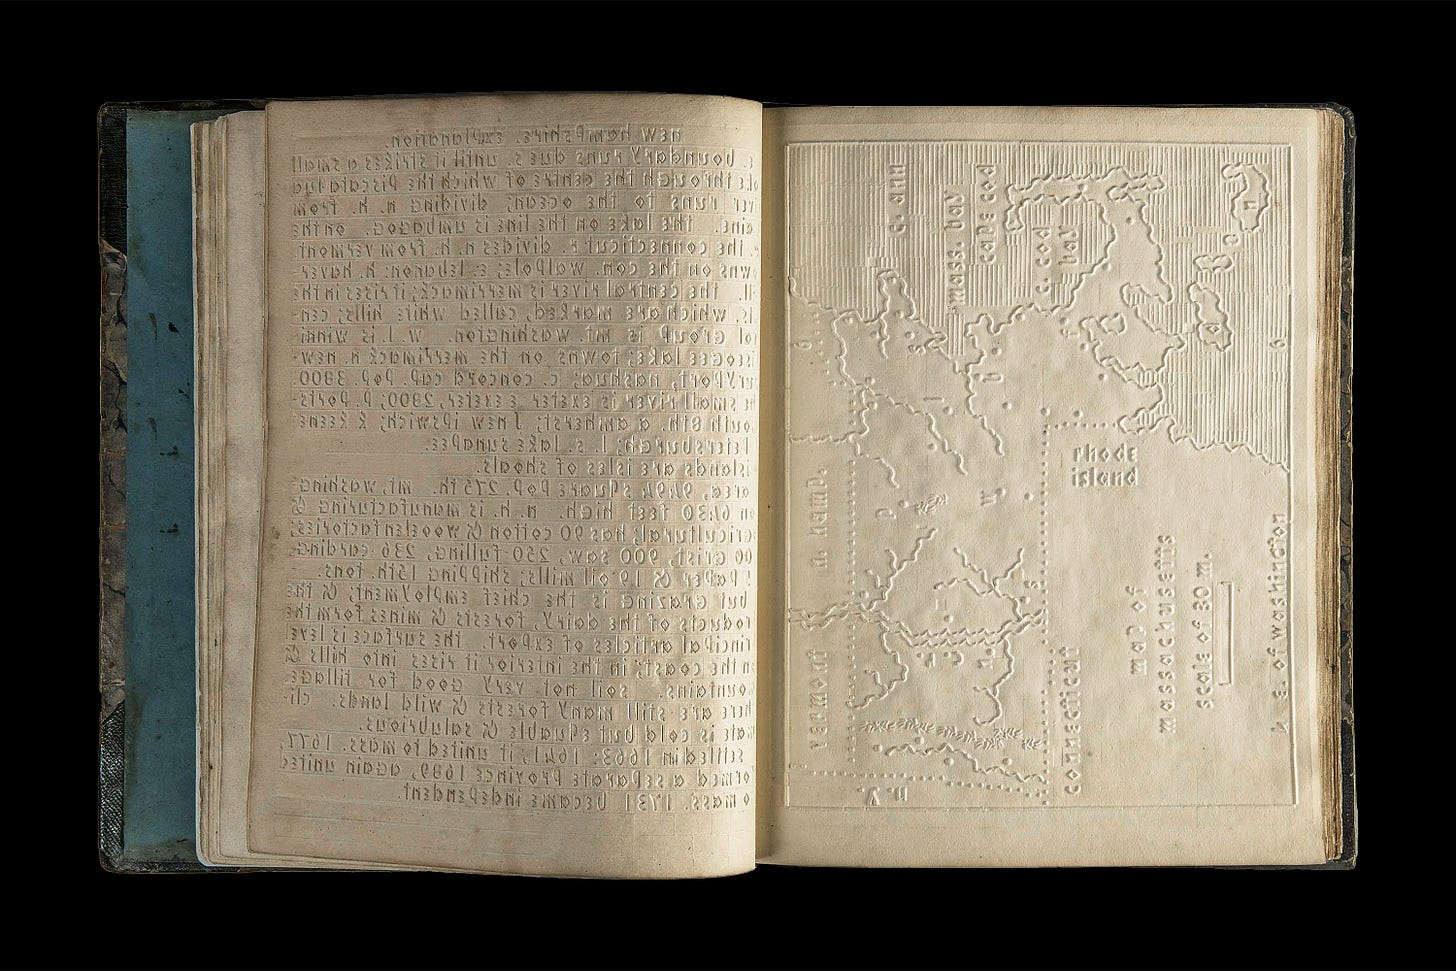 new hampshire. explanation.
e. boundary runs due s. until it strikes a small
ke through the centre of which the Piscataqua
ver runs to the ocean; dividing n. h. from
aine. the lake on the line is umbagog. on the
the connecticut r. divides n. h. from vermont
wns on the con. walpole; e. lebanon; h. haver-
ll. the central river is merrimack; it rises in the
s. which are marked, called white hills; cen-
al group is mt. washington. w. l. is winni
iseogee lake; towns on the merrimack n. new-
uryport, nashua; c. concord cap. pop. 3800.
e small river is exeter e exeter, 2800; p. ports-
outh 8th. a. amherst; J new ipswich; k keene
petersburgh; l. s. lake sunapee.
islands are isles of shoals.
area, square pop. 275 th. mt. washing-
on 6430 feet high. n. h. is manufacturing &
gricultural; has 90 cotton & woolen factories;
00 grist, 900 saw, 250 fulling, 236 carding,
paper & 19 oil mills; shipping 15th. tons.
but grazing is the chief employment; & the
roducts of the dairy, forests & mines form the
rincipal articles of export. the surface is level
n the coast; in the interior it rises into hills &
mountains. soil not very good for tillage
here are still many forests & wild lands. cli-
mate is cold but equable & salubrious.
settled in 1663; 1641, it united to mass. 1677
ormed a separate province, 1689, again united
o mass. 1731 became independent.
c. ann
mass. bay
cape cod
c. cod
bay
n
6
6
b
l
w
p
n. hamp.
rhode
island
s
c
n.
vermont
n. y.
connecticut
map of
massachusetts
scale of 30 m.
k
s. of washington